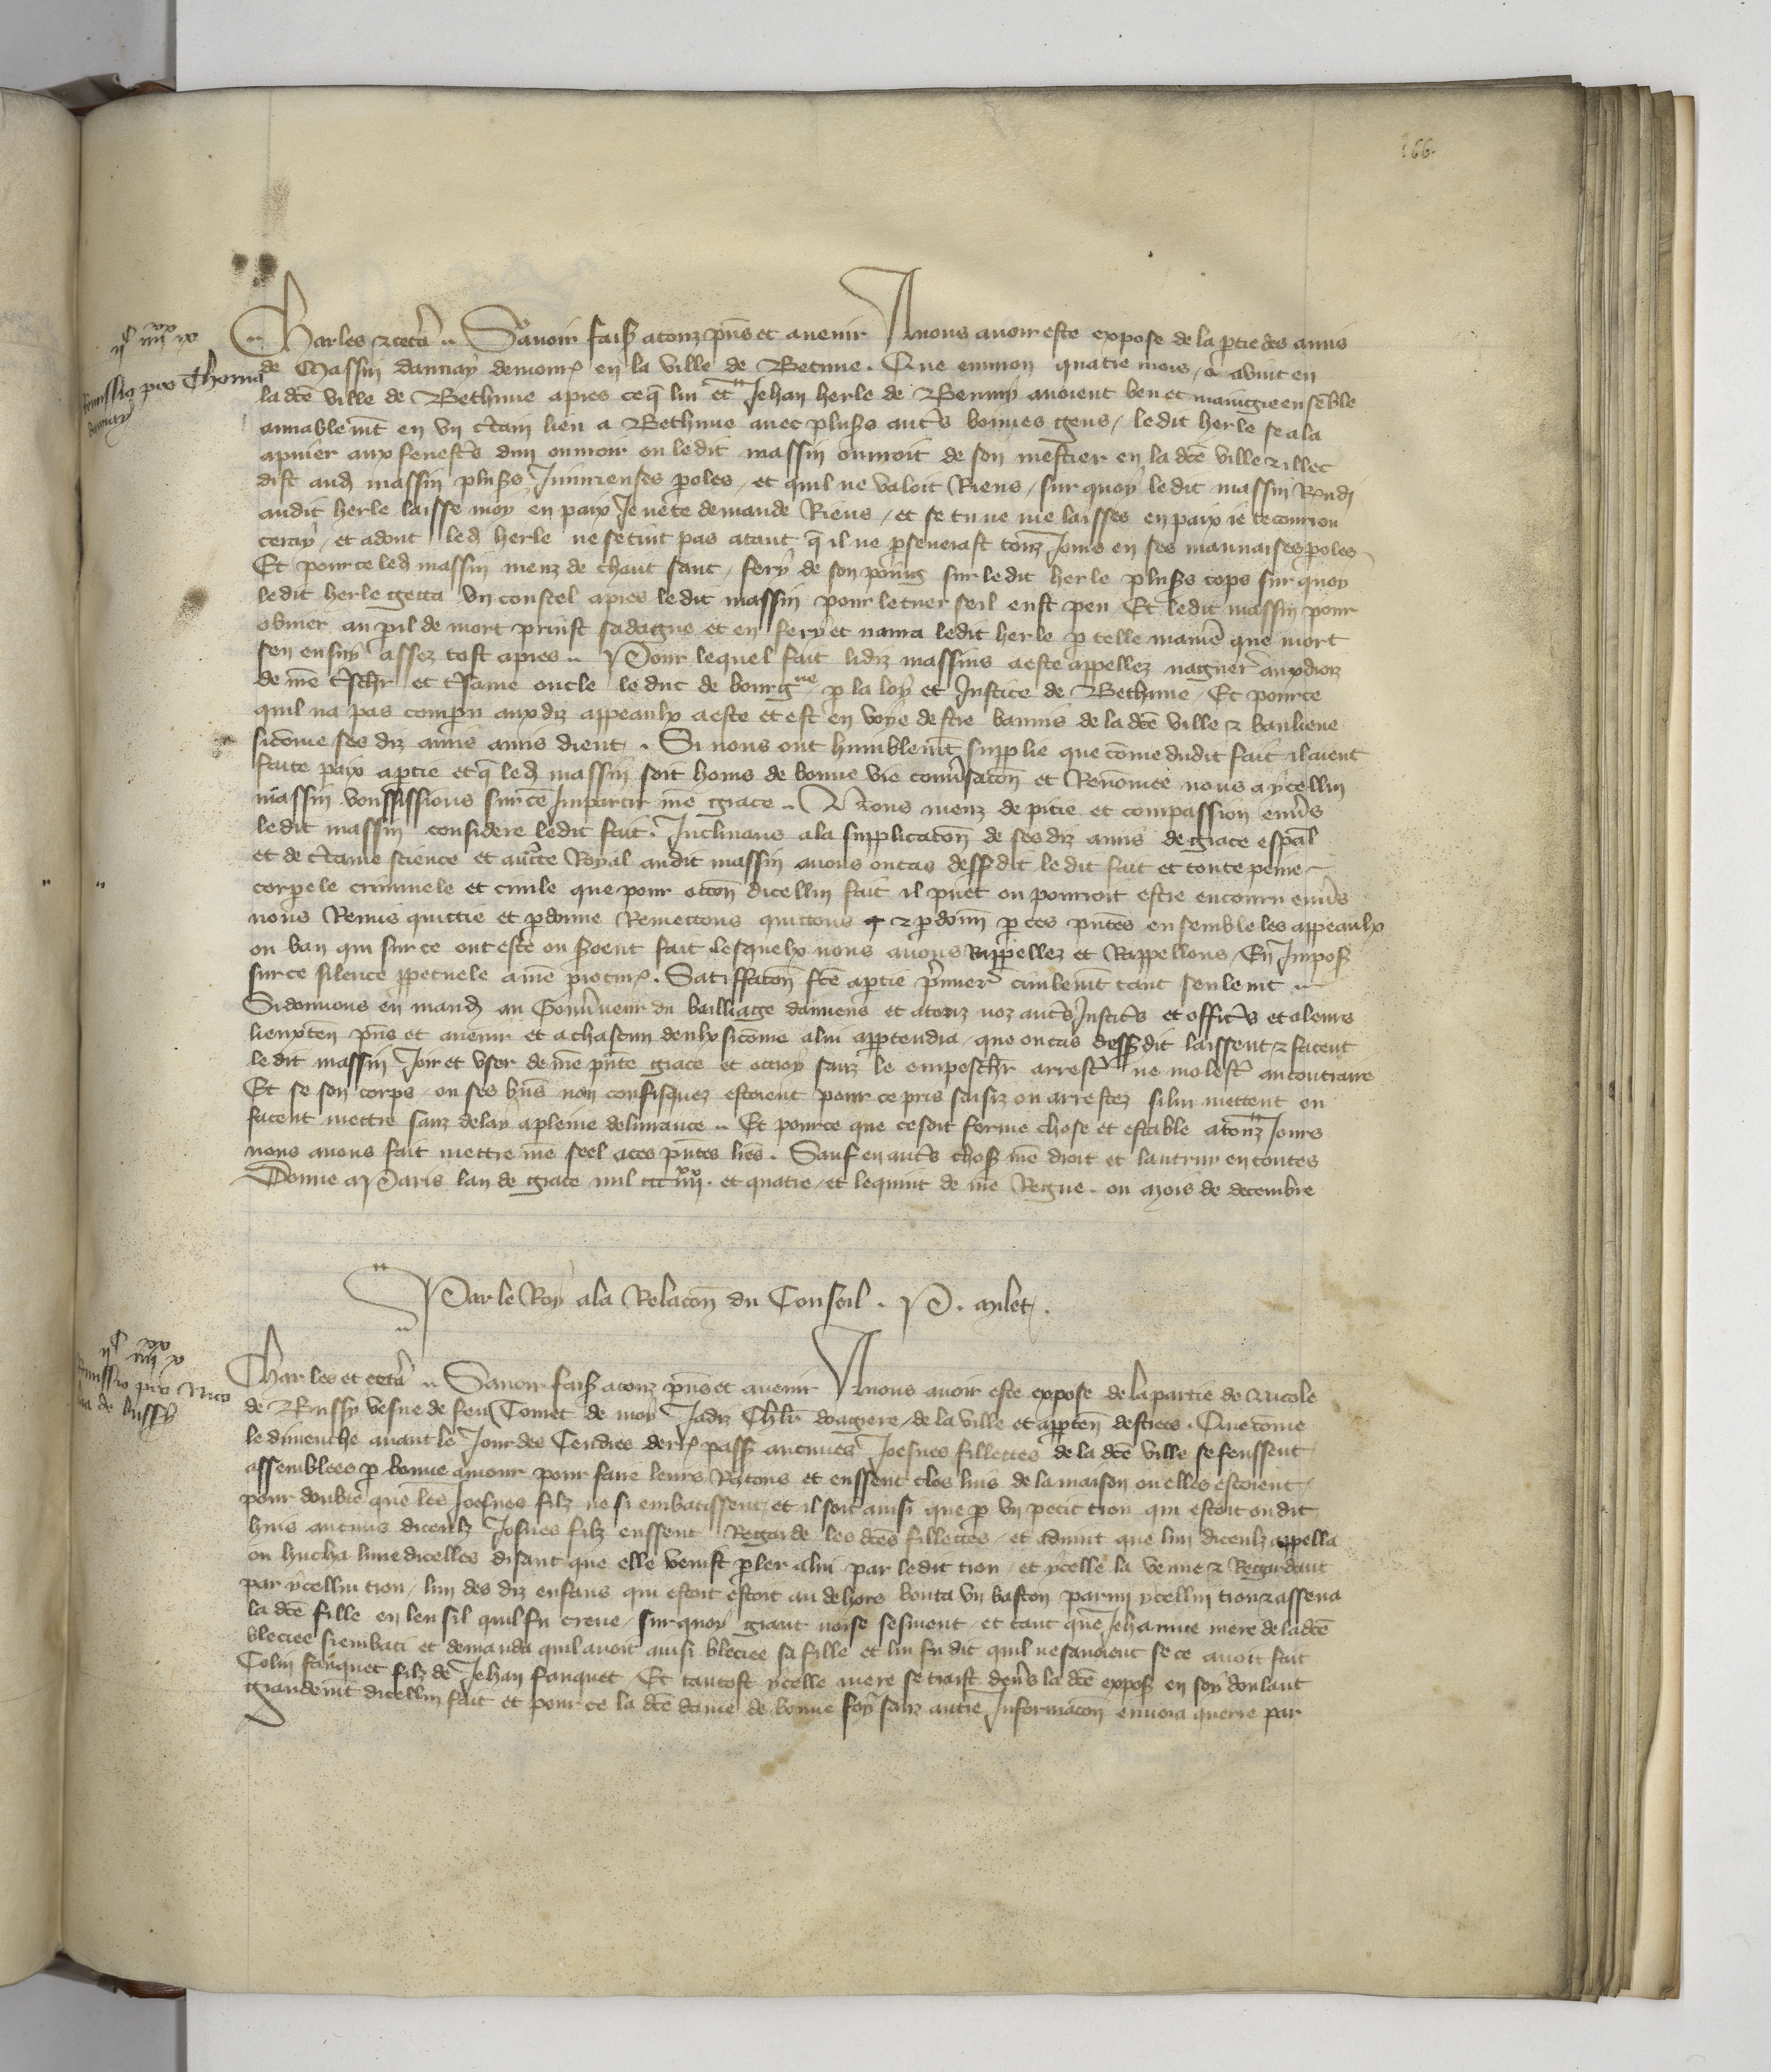 166.
Charles etceta. Savoir faiss atouz pns et avenir Anous avoir este expose de la ptie des amis
de Massin dannay demour en la ville de Betune. Que environ quatre mois a avint en
la dce ville de Bethune apres ceq lui et Jehan herle de Berny avoient beu et maingie ensemble
amiablemt en un ctain lieu a Bethune avec pluss autrs bonnes gens, ledit herle se ala
apuier aux fenestrs dun ouvroir ou ledit massin ouvroit de son mestier en la dce ville et illec
dist aud massin pluss Iniurieuses poles, et quil ne valoit Riens, sur quoy ledit massin Rndi
audit herle laisse moy en paix Je nete demande Riens, et se tu ne me laisses en paix ie te courou
ceray, et adont led herle ne se tint pas atant q il ne pseverast touz Jours en ses mauvaises poles
Et pour ce led massin meuz de chaut sanc, fery de son poing sur ledit herle pluss cops sur quoy
ledit herle getta un coustel apres ledit massin pour le tuer seil eust peu Et ledit massin pour
obvier au pil de mort prinst sa dague et en fery et navra ledit herle p telle maniere que mort
sen ensuy assez tost apres. Pour lequel fait lidiz massins a este appellez naguer aux droiz
de nre tschr et tsame oncle le duc de bourgne p la loy et Justice de Bethune, Et pource
quil na pas compu aux diz appeaulx a este et est en voye destre bannis de la dce ville et banlieue
sicome ses diz amis amis dient. Si nous ont humblemt supplie que come dudit fait il aient
faite paix aptie et q led massin soit homs de bonne vie convsacon et Renomee nous a ycellui
massin voussissions sur ce Impartir nre grace. Nous meuz de pitie et compassion envs
ledit massin considere ledit fait. Inclinans ala supplicacon de ses diz amis de grace espal
et de ctaine science et aucte Royal audit massin avons oucas dessdit ledit fait et toute peine
corpele criminele et civile que pour occon dicellui fait il puet ou pourroit estre encouru envs
nous Remis quittie et pdonne Remettons quittons et pdonn p ces pntes ensemble les appeaulx
ou ban qui sur ce ont este ou soient fait lesquelx nous avons Rappellez et Rappellons, En Impos
sur ce silence ppetuele a nre procur. Satiffacon fce aptie pmier civilemt tant seulemt
Sidonnons en mand au Gouvneur du bailliage damiens et atouz noz autrs Justicrs et officrs et aleurs
lieuxten pns et avenir et a chascun deulx sicome alui apptendra, que oucas dessdit laissent et facent
ledit massin Joir et user de nre pnte grace et ottroy sanz le empeschr arrestr ne molestr au contraire
Et se son corps ou ses bns non confisquez estoient pour ce pris saisiz ou arrestez silui mettent ou
facent mettre sanz delay a pleine delivrance. Et pource que ce soit ferme chose et estable atouz Jours
nous avons fait mettre nre seel aces pntes lres. Sauf en autrs choss nre droit et lautruy en toutes
Donne a Paris lan de grace mil ccc iiiixx. et quatre, et lequint de nre Regne. ou mois de decembre
Par le Roy ala Relacon du Conseil. P. Milet.
Charles et ceta. Savoir faiss atouz pns et avenir Anous avoir este expose de la partie de Nicole
de Bussy vesve de feu Comet de moy Jadiz Chlr doagiere de la ville et apptenn destrees. Que come
le dimenche avant le Jour des Cendres derr pass aucunes Joesnes fillettes de la dce ville se feussent
assemblees p bonne amour pour faire leurs Ratons et eussent clos luis de la maison ou elles estoient,
pour doubte que les Joesnes filz ne si embatissent, et il soit ainsi que p un petit trou qui estoit ou dit
huis aucuns diceulx Josnes filz eussent Regarde les dces fillettes, et advint que lun diceulz appella
ou hucha lune dicelles disant que elle venist pler alui par ledit trou, et ycelle la venue et Regardant
par ycellui trou, lun des diz enfans qui estoit estoit au dehors bouta un baston parmi ycellui trou et assena
la dce fille en leu sil quil fu creve, sur quoy grant noise sesment, et tant que Jehanne mere de la dce
bleciee si embati et demanda qui lavoit ainsi bleciee sa fille et lui fu dit quil ne savoient se ce avoit fait
Colin fauquet filz de Jehan fauquet Et tantost ycelle mere se traist devs la dce expos en soy doulant
grandemt dicellui fait et pour ce la dce dame de bonne foy sanz autre Informacon envoia querre par
iic iiiixx ix
Remissio pro Thoma
dannay
iic iiiixx x
Remissio pro Nico
laa de bussy